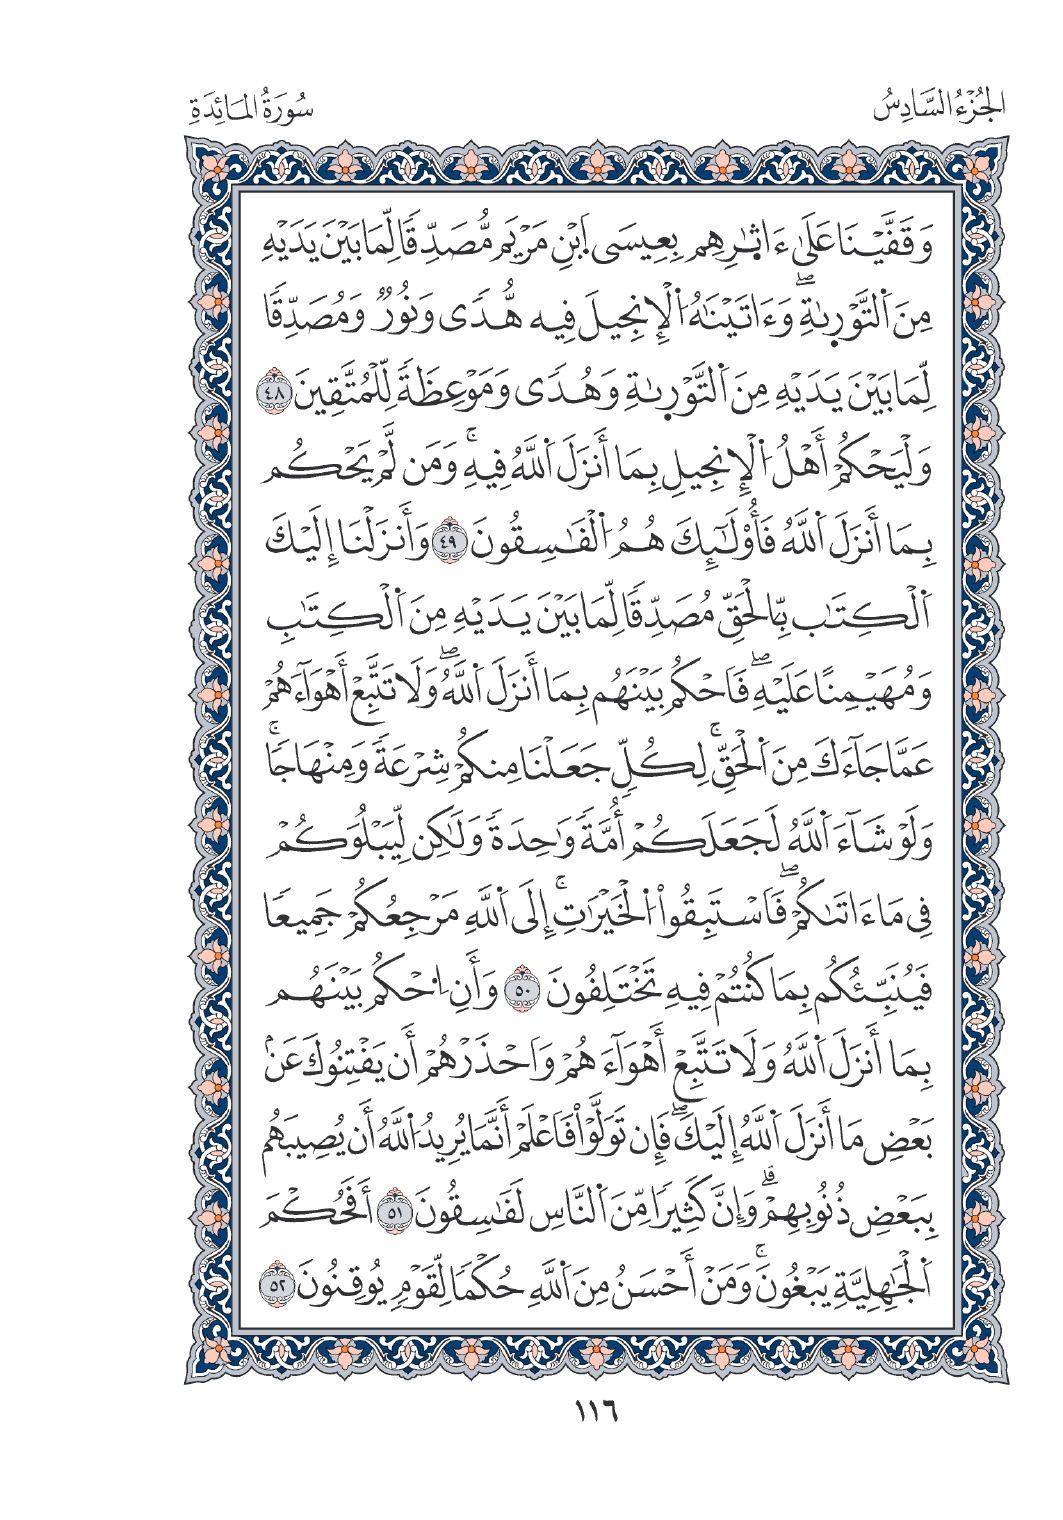 الجُزْءُ السَّادِسُ
سُورَةُ المَائِدَةِ
وَقَفَّيْنَا عَلَىٰٓ ءَاثَٰرِهِم بِعِيسَى اَبْنِ مَرْيَمَ مُصَدِّقًا لِّمَا بَيْنَ يَدَيْهِ
مِنَ اَلتَّوْرَىٰةِۖ وَءَاتَيْنَٰهُ اُلْإِنجِيلَ فِيهِ هُدًى وَنُورٌ وَمُصَدِّقًا
لِّمَا بَيْنَ يَدَيْهِ مِنَ اَلتَّوْرَىٰةِ وَهُدًى وَمَوْعِظَةً لِّلْمُتَّقِينَ ٤٨
وَلْيَحْكُمْ أَهْلُ اُلْإِنجِيلِ بِمَا أَنزَلَ اَللَّهُ فِيهِۚ وَمَن لَّمْ يَحْكُم
بِمَا أَنزَلَ اَللَّهُ فَأُوْلَٰٓئِكَ هُمُ اُلْفَٰسِقُونَ ٤٩ وَأَنزَلْنَا إِلَيْكَ
اَلْكِتَٰب بِّالْحَقِّ مُصَدِّقًا لِّمَا بَيْنَ يَدَيْهِ مِنَ اَلْكِتَٰبِ
وَمُهَيْمِنًا عَلَيْهِۖ فَاحْكُم بَيْنَهُم بِمَا أَنزَلَ اَللَّهُۖ وَلَا تَتَّبِعْ أَهْوَآءَهُمْ
عَمَّا جَآءَكَ مِنَ اَلْحَقِّۚ لِكُلٍّ جَعَلْنَا مِنكُمْ شِرْعَةً وَمِنْهَاجًاۚ
وَلَوْ شَآءَ اَللَّهُ لَجَعَلَكُمْ أُمَّةً وَٰحِدَةً وَلَٰكِن لِّيَبْلُوَكُمْ
فِى مَا ءَاتَىٰكُمْۖ فَاسْتَبِقُواْ اُلْخَيْرَٰتِۚ إِلَى اَللَّهِ مَرْجِعُكُمْ جَمِيعًا
فَيُنَبِّئُكُم بِمَا كُنتُمْ فِيهِ تَخْتَلِفُونَ ٥٠ وَأَنِ اِحْكُم بَيْنَهُم
بِمَا أَنزَلَ اَللَّهُ وَلَا تَتَّبِعْ أَهْوَآءَهُمْ وَاحْذَرْهُمْ أَن يَفْتِنُوكَ عَنۢ
بَعْضِ مَا أَنزَلَ اَللَّهُ إِلَيْكَۖ فَإِن تَوَلَّوْاْ فَاعْلَمْ أَنَّمَا يُرِيدُ اُللَّهُ أَن يُصِيبَهُم
بِبَعْضِ ذُنُوبِهِمْۗ وَإِنَّ كَثِيرًا مِّنَ اَلنَّاسِ لَفَٰسِقُونَ ٥١ أَفَحُكْمَ
اَلْجَٰهِلِيَّةِ يَبْغُونَۚ وَمَنْ أَحْسَنُ مِنَ اَللَّهِ حُكْمًا لِّقَوْمٍ يُوقِنُونَ ٥٢
١١٦